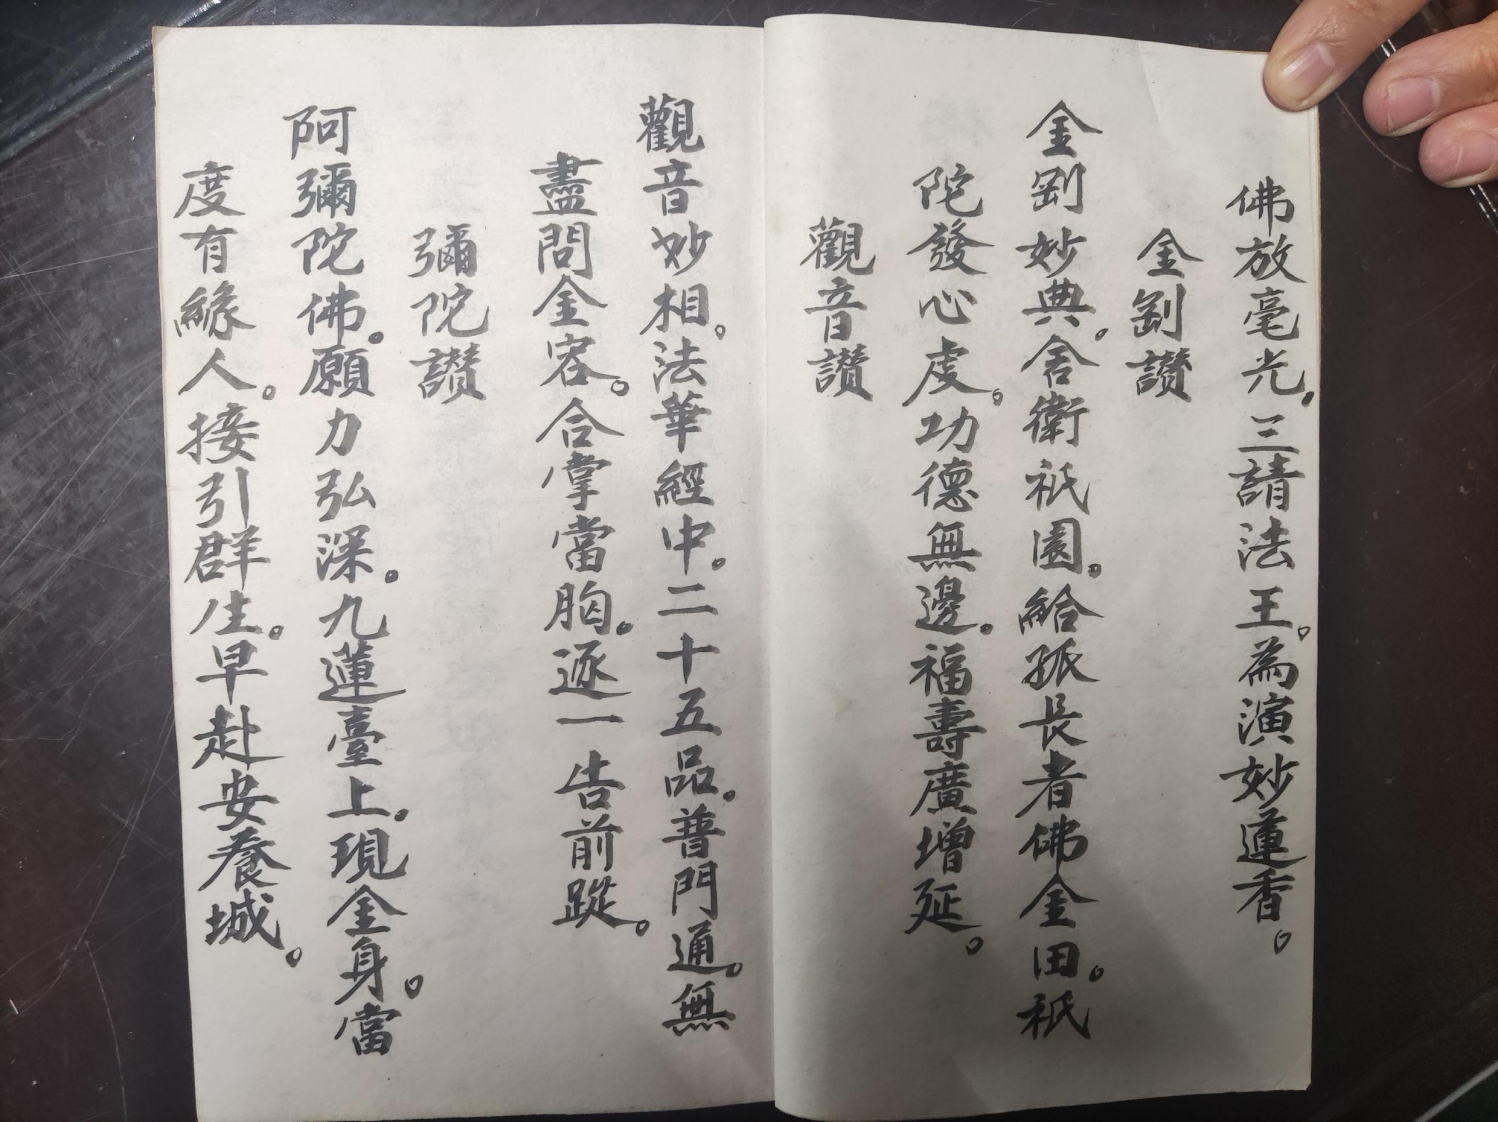 佛放毫光。三請法王。為演妙蓮香。
金剛讚
金剛妙典。舍衛祇園。給孤長者佛金田。祇
陀發心虔。功德無邊。福壽廣增延。
觀音讚
觀音妙相。法華經中。二十五品。普門通。無
盡問金容。合掌當胸。逐一告前蹤。
彌陀讚
阿彌陀佛。願力弘深。九蓮臺上。現金身。當
度有緣人。接引群生。早赴安養城。